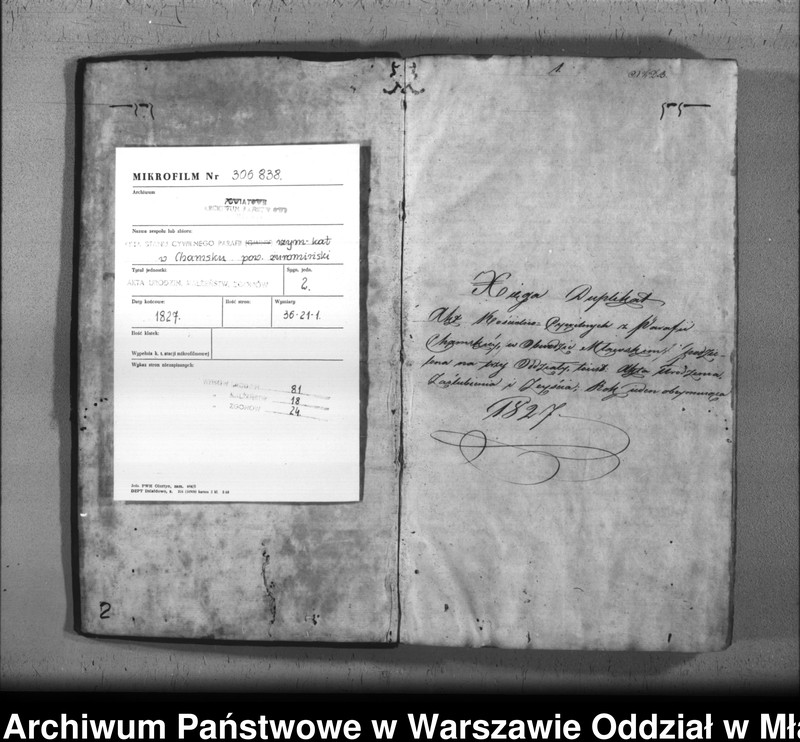 MIKROFILM Nr 306 838.
Archiwum
POWIATOWE
ARCHIWUM PAŃSTWOWE
Nazwa zespołu lub zbioru:
AKTA STANU CYWILNEGO PARAFII rzym-kat
w Chamsku pow. żuromiński
Tytuł jednostki:
Sygn. jedn.
AKTA URODZIN, MAŁŻEŃSTW, ZGONÓW
2.
Daty końcowe:
Ilość stron:
Wymiary
1827.
36-21-1.
Ilość klatek:
Wypełnia k. t. stacji mikrofilmowej
Wykaz stron niezapisanych:
81
MAŁŻEŃSTW 18
ZGONÓW 24.
2
1.
Xsięga Duplikat
Akt Kościelno-Cywilnych z Parafii
Chamskiéy, w Obwodzie Mławskim, podzie-
lona na trzy Oddziały, Akta Urodzenia,
Zaślubienia i Zeyścia, Rok jeden obeymująca
1827
Archiwum Państwowe w Warszawie Oddział w Mła